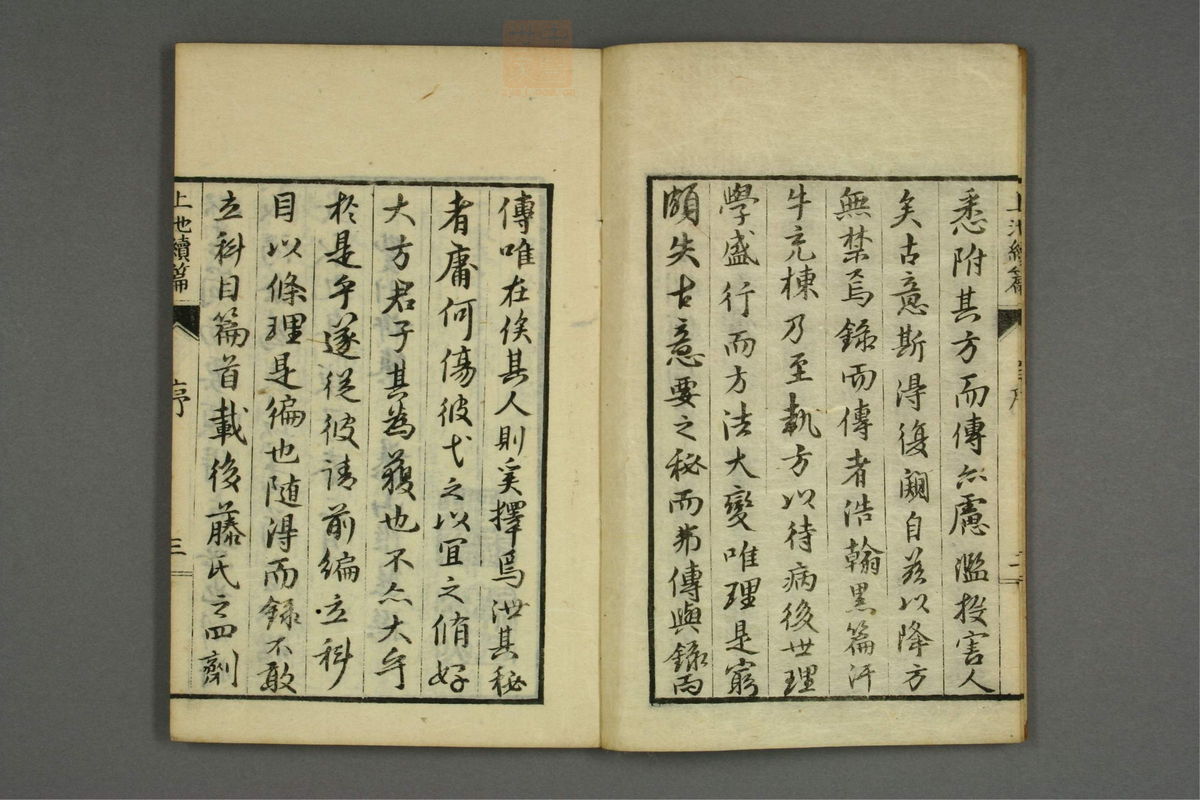 悉附其方而傳亦慮濫投害人
矣古意斯得復闕自茲以降方
無禁焉錄而傳者浩翰黑篇汗
牛充棟乃至執方以待病後世理
學盛行而方法大變唯理是窮
頗失古意要之秘而弗傳與錄而
傳唯在俟其人則奚擇焉泄其秘
者庸何傷彼弋之以宜之脩好
大方君子其為獲也不亦大乎
於是乎遂從彼請前編立科
目以條理是編也随得而録不敢
立科目篇首載後藤氏之四劑
上池續篇
序
三